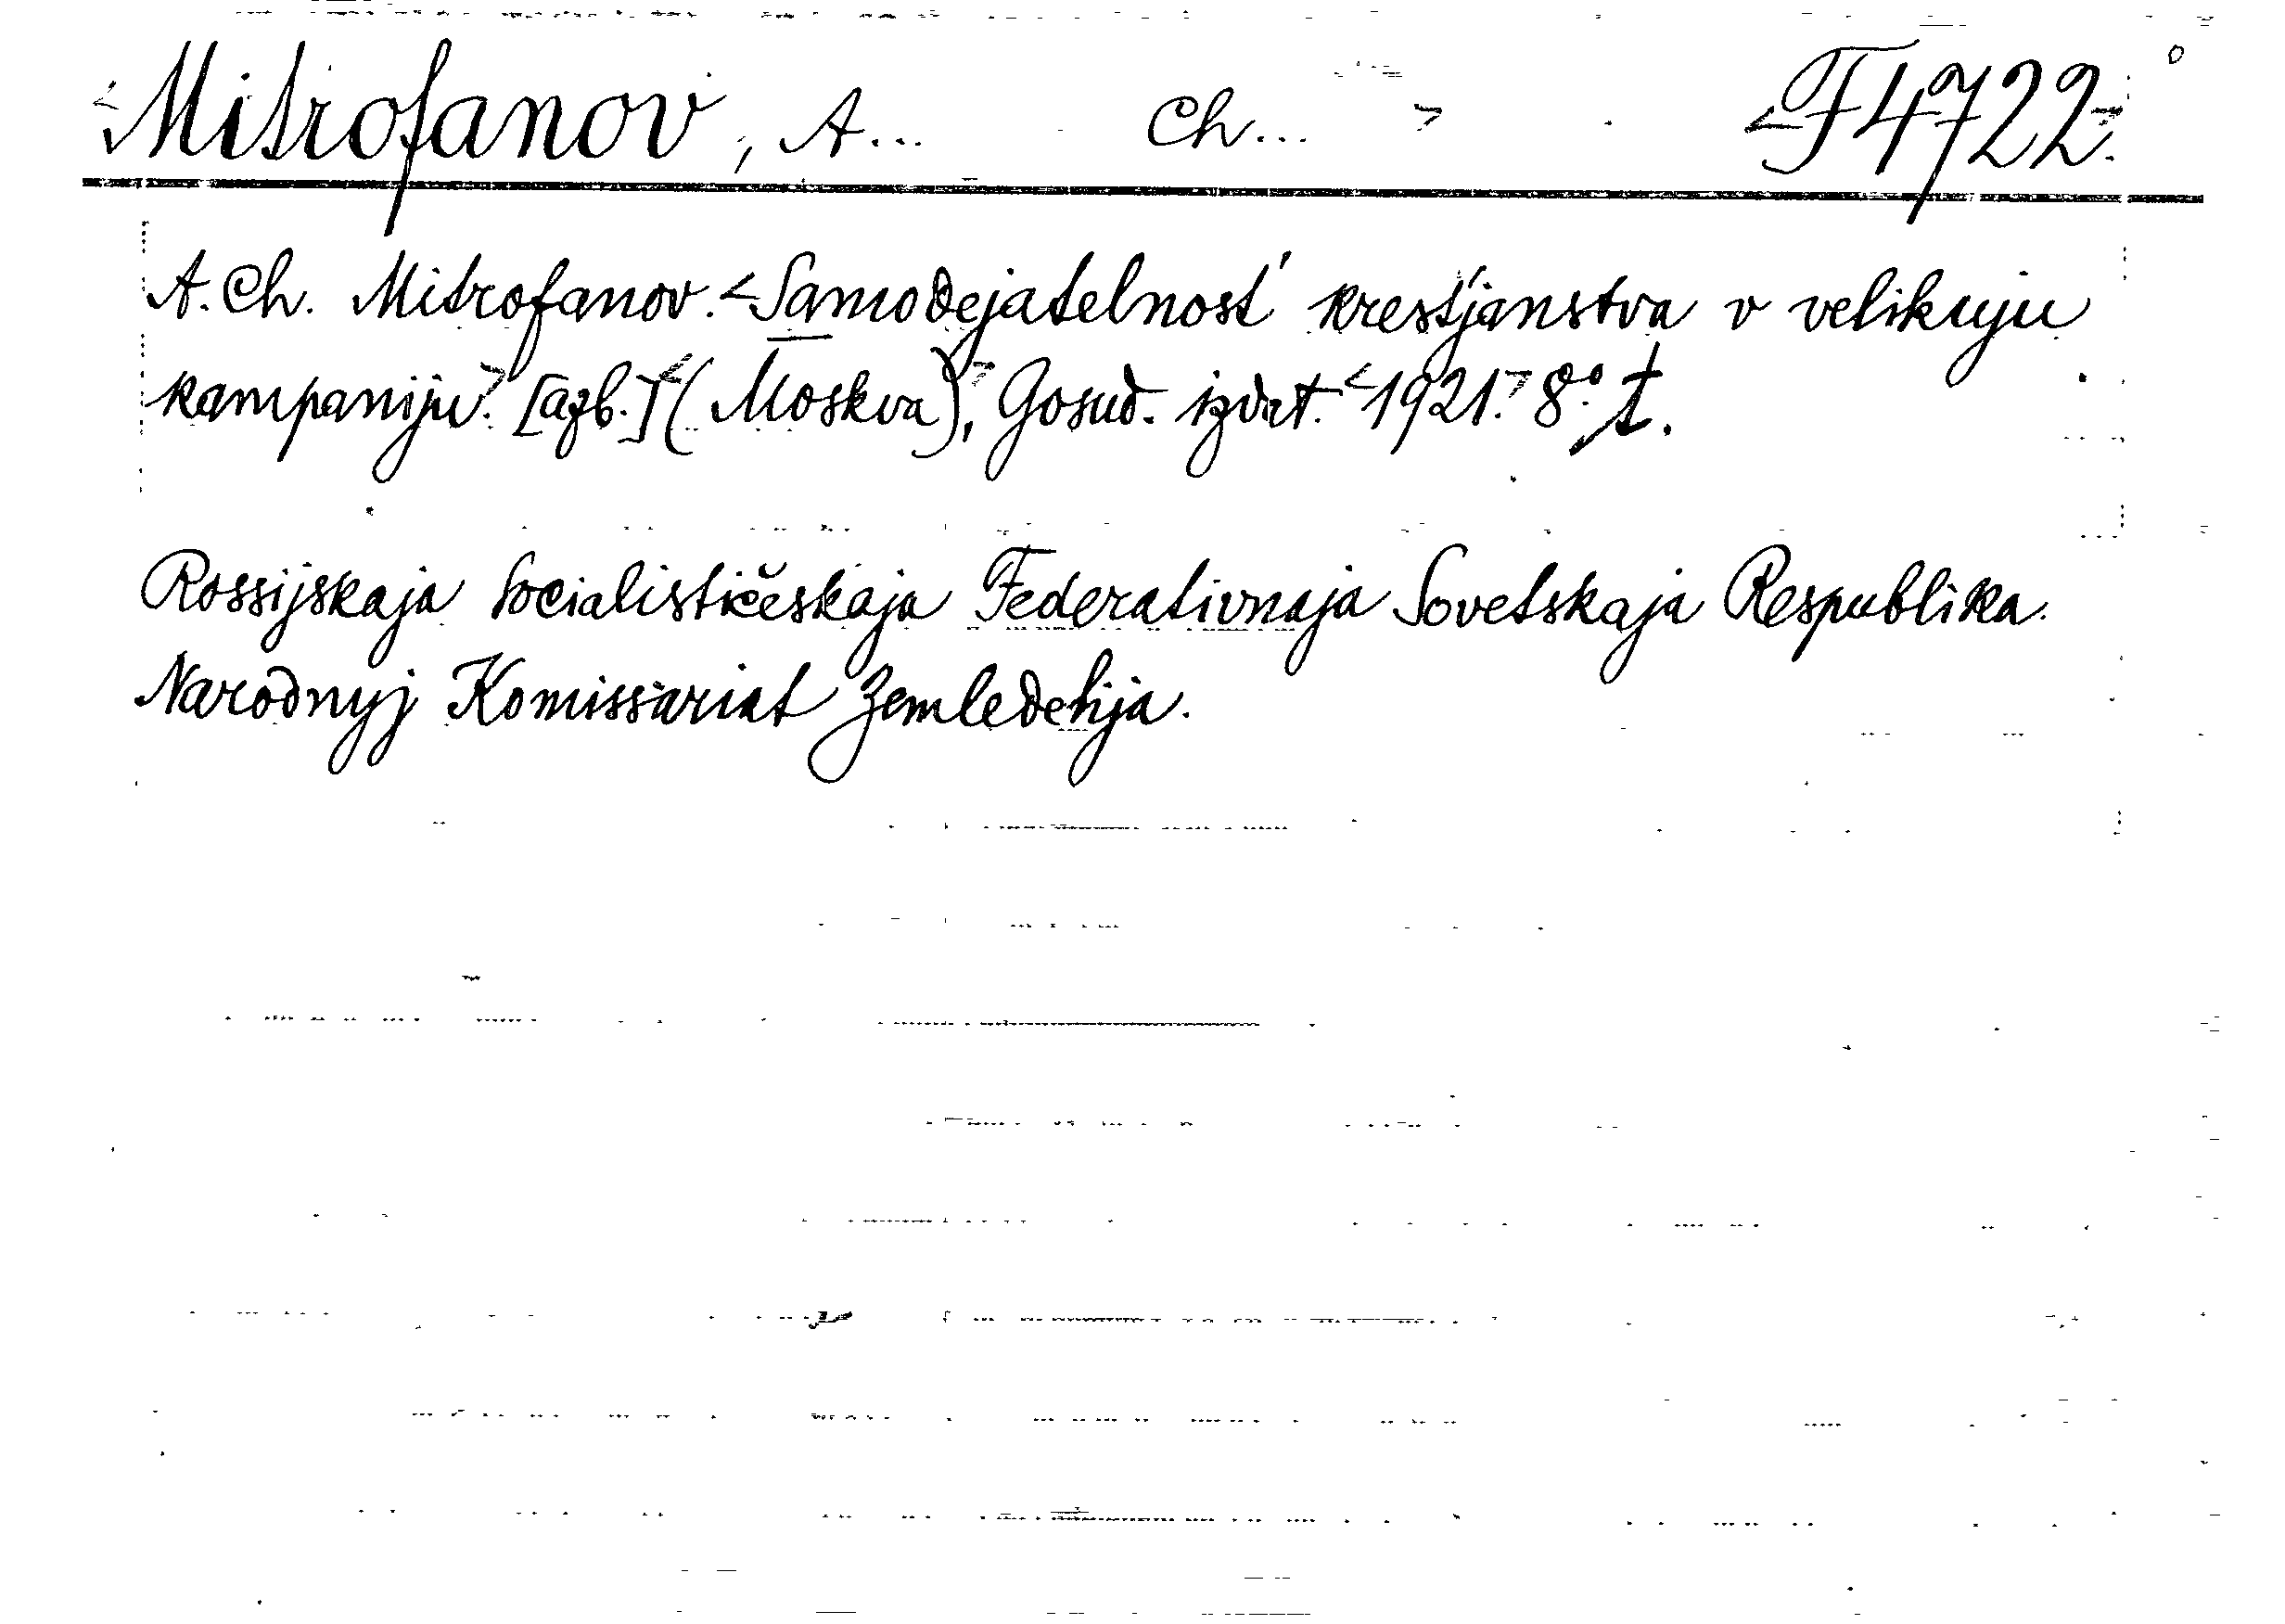 <Mitrofanov, A... Ch...> <F4722.>
A. Ch. Mitrofanov. <Samodejatelnost' krest'janstva v velikuju
kampaniju>. [azb.] <(Moskva)>, Gosud. izdat. <1921.> 8°. t.
Rossijskaja Socialističeskaja Federativnaja Sovetskaja Respublika.
Narodnyj Komissariat Zemledelija.